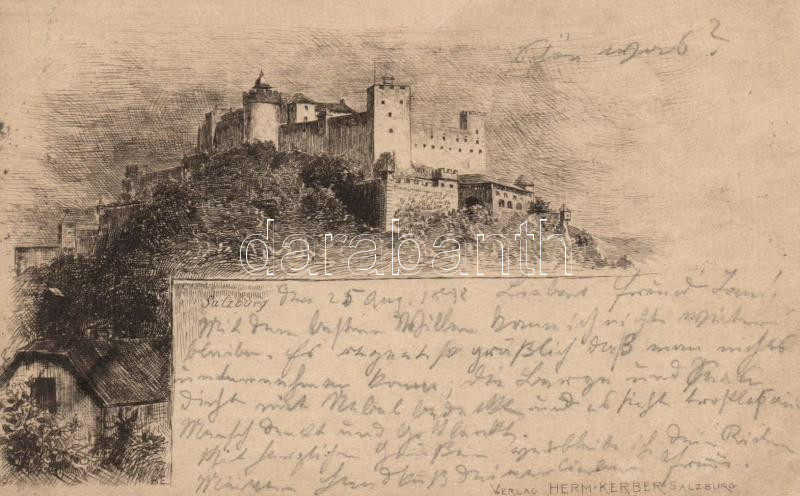 Schön was?
darabanth
Salzburg den 25 Aug. 1898 Lieber Freund
Mit dem besten Willen kann ich nicht weiter
bleiben. Es regnet so gräßlich daß man nichts
unternehmen kann, die Berge und
dicht mit Nebel bedeckt und es sieht trostlos aus
Mensch denkt und Gott lenkt.
Mit herzlichen Grüßen verbleibe ich dein
Handkuß deiner lieben
B.E.
VERLAG HERM. KERBER SALZBURG